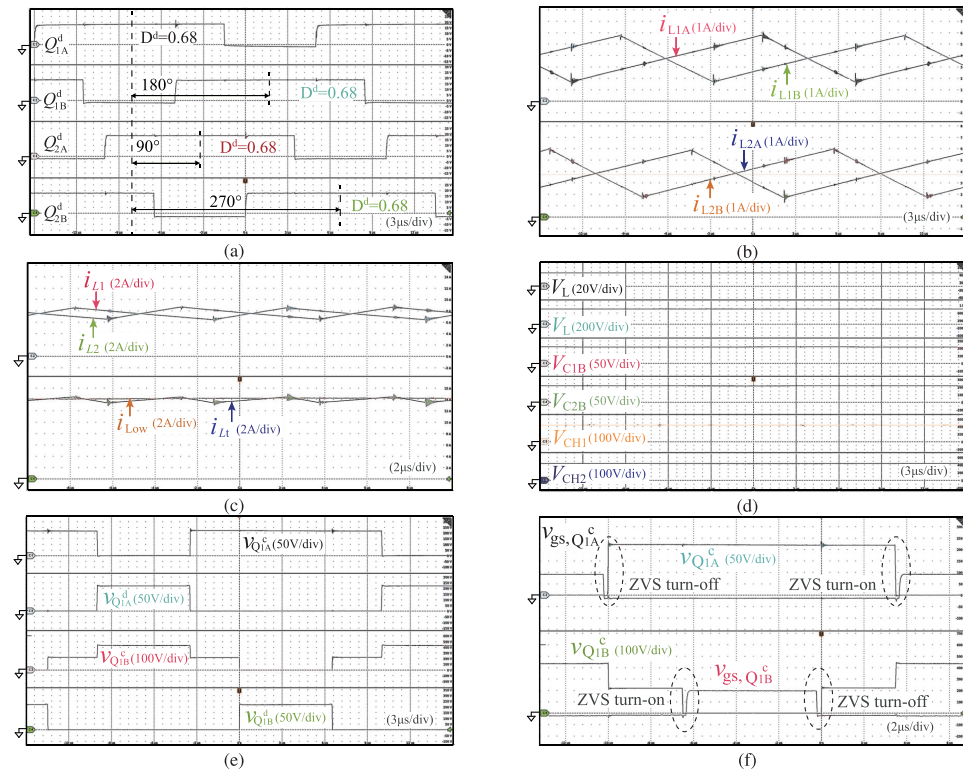 Q1A^d
D^d=0.68
180°
Q1B^d
D^d=0.68
90°
Q2A^d
D^d=0.68
270°
Q2B^d
D^d=0.68
(3μs/div)
(a)
iL1A (1A/div)
iL1B (1A/div)
iL2A (1A/div)
iL2B (1A/div)
(3μs/div)
(b)
iL1 (2A/div)
iL2 (2A/div)
iLow (2A/div)
iLt (2A/div)
(2μs/div)
(c)
VL (20V/div)
VL (200V/div)
VC1B (50V/div)
VC2B (50V/div)
VCH1 (100V/div)
VCH2 (100V/div)
(3μs/div)
(d)
vQ1A^c (50V/div)
vQ1A^d (50V/div)
vQ1B^c (100V/div)
vQ1B^d (50V/div)
(3μs/div)
(e)
vgs, Q1A^c
vQ1A^c (50V/div)
ZVS turn-off
ZVS turn-on
vQ1B^c (100V/div)
vgs, Q1B^c
ZVS turn-on
ZVS turn-off
(2μs/div)
(f)